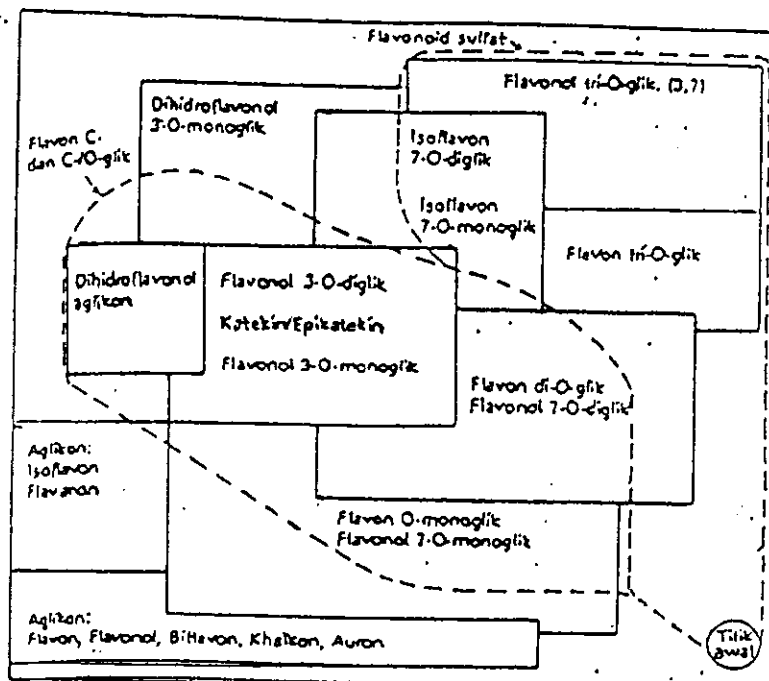 Flavonoid sulfat
Flavonol tri-O-glik. (3,7)
Dihidroflavonol
3-O-monoglik
Flavon C-
dan C-/O-glik
Isoflavon
7-O-diglik
Isoflavon
7-O-monoglik
Flavon tri-O-glik
Dihidroflavonol
aglikon
Flavonol 3-O-diglik
Katekin/Epikatekin
Flavonol 3-O-monoglik
Flavon di-O-glik
Flavonol 7-O-diglik
Aglikon:
Isoflavon
Flavanon
Flavon O-monoglik
Flavonol 7-O-monoglik
Aglikon:
Flavon, Flavonol, Biflavon, Khalkon, Auron
Titik
awal